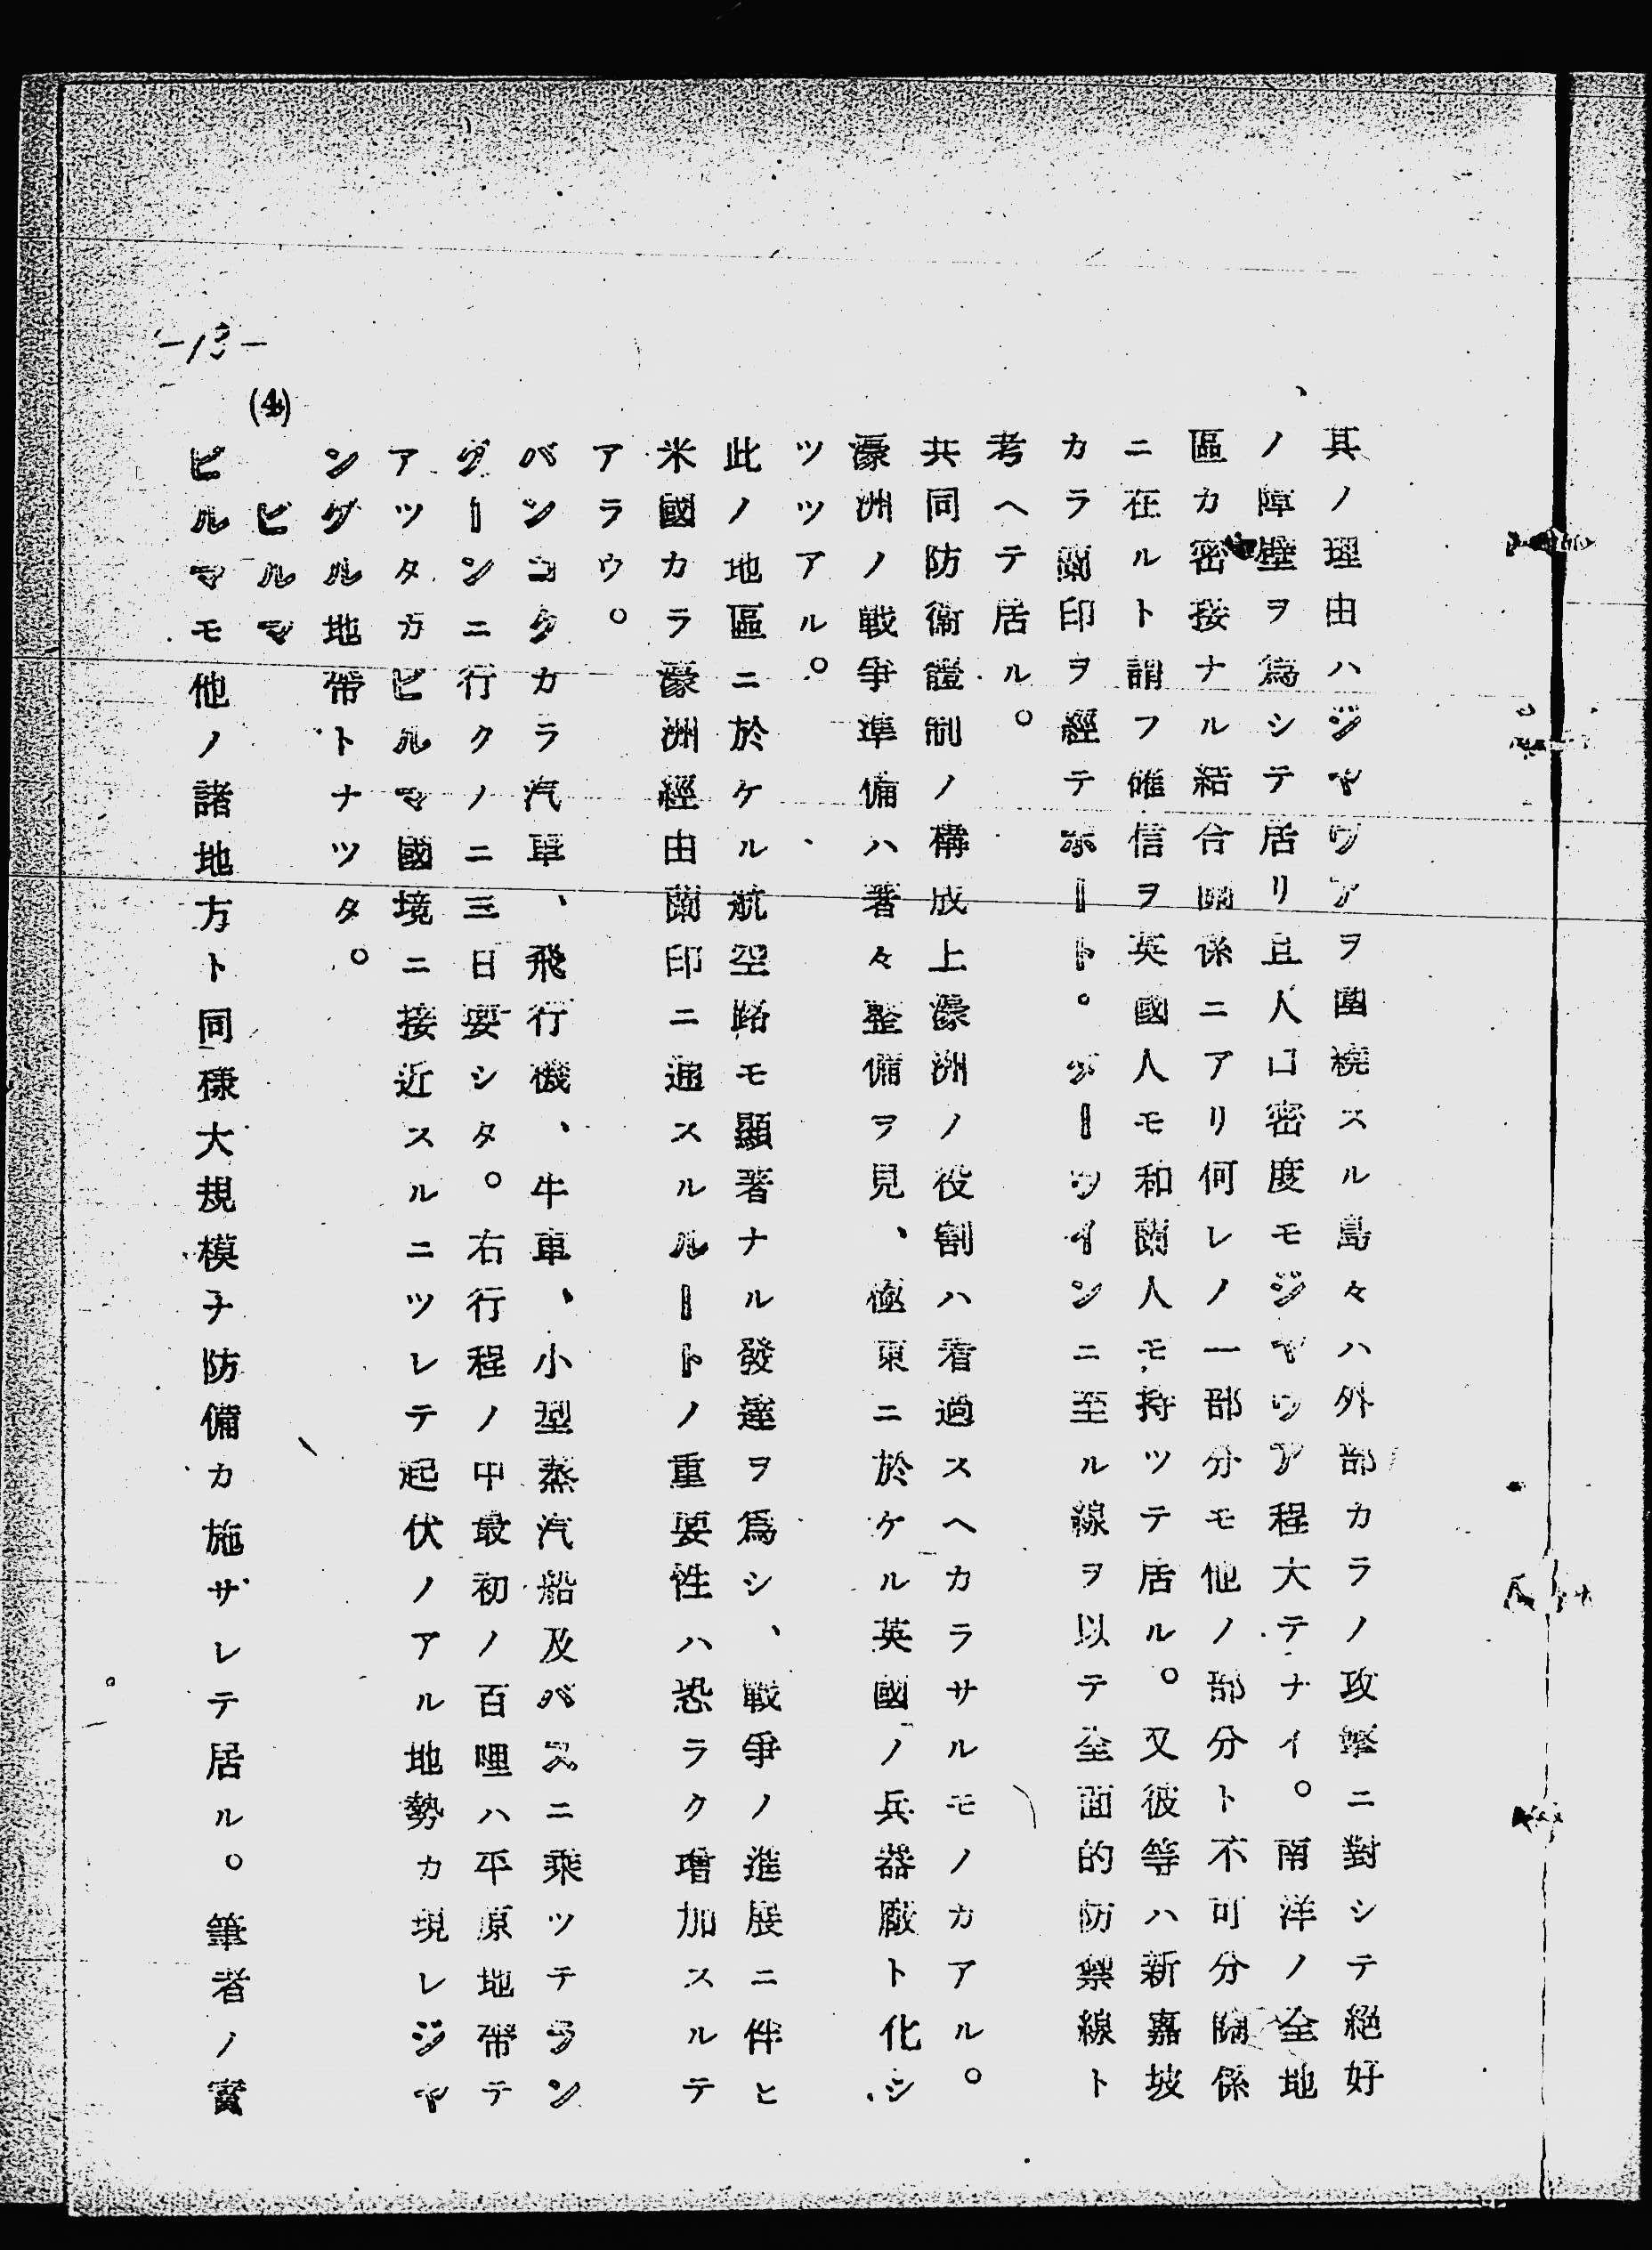 其ノ理由ハジヤヴアヲ圍繞スル島々ハ外部カラノ攻擊ニ對シテ絕好
ノ障壁ヲ爲シテ居リ且人口密度モジヤヴア程大テナイ。南洋ノ全地
區カ密接ナル結合關係ニアリ何レノ一部分モ他ノ部分ト不可分關係
ニ在ルト謂フ確信ヲ英國人モ和蘭人モ持ツテ居ル。又彼等ハ新嘉坡
カラ蘭印ヲ經テポート。ダーウインニ至ル線ヲ以テ全面的防禦線ト
考ヘテ居ル。
共同防衞體制ノ構成上濠洲ノ役割ハ看過スヘカラサルモノカアル。
濠洲ノ戰爭準備ハ著々整備ヲ見、極東ニ於ケル英國ノ兵器廠ト化シ
ツツアル。
此ノ地區ニ於ケル航空路モ顯著ナル發達ヲ爲シ、戰爭ノ進展ニ伴ヒ
米國カラ濠洲經由蘭印ニ通スルルートノ重要性ハ恐ラク增加スルテ
アラウ。
バンコクカラ汽車、飛行機、牛車、小型蒸汽船及バスニ乘ツテラン
グーンニ行クノニ三日要シタ。右行程ノ中最初ノ百哩ハ平原地帶テ
アツタガビルマ國境ニ接近スルニツレテ起伏ノアル地勢カ現レジヤ
ングル地帶トナツタ。
(4) ビルマ
ビルマモ他ノ諸地方ト同樣大規模ナ防備カ施サレテ居ル。筆者ノ實
-13-